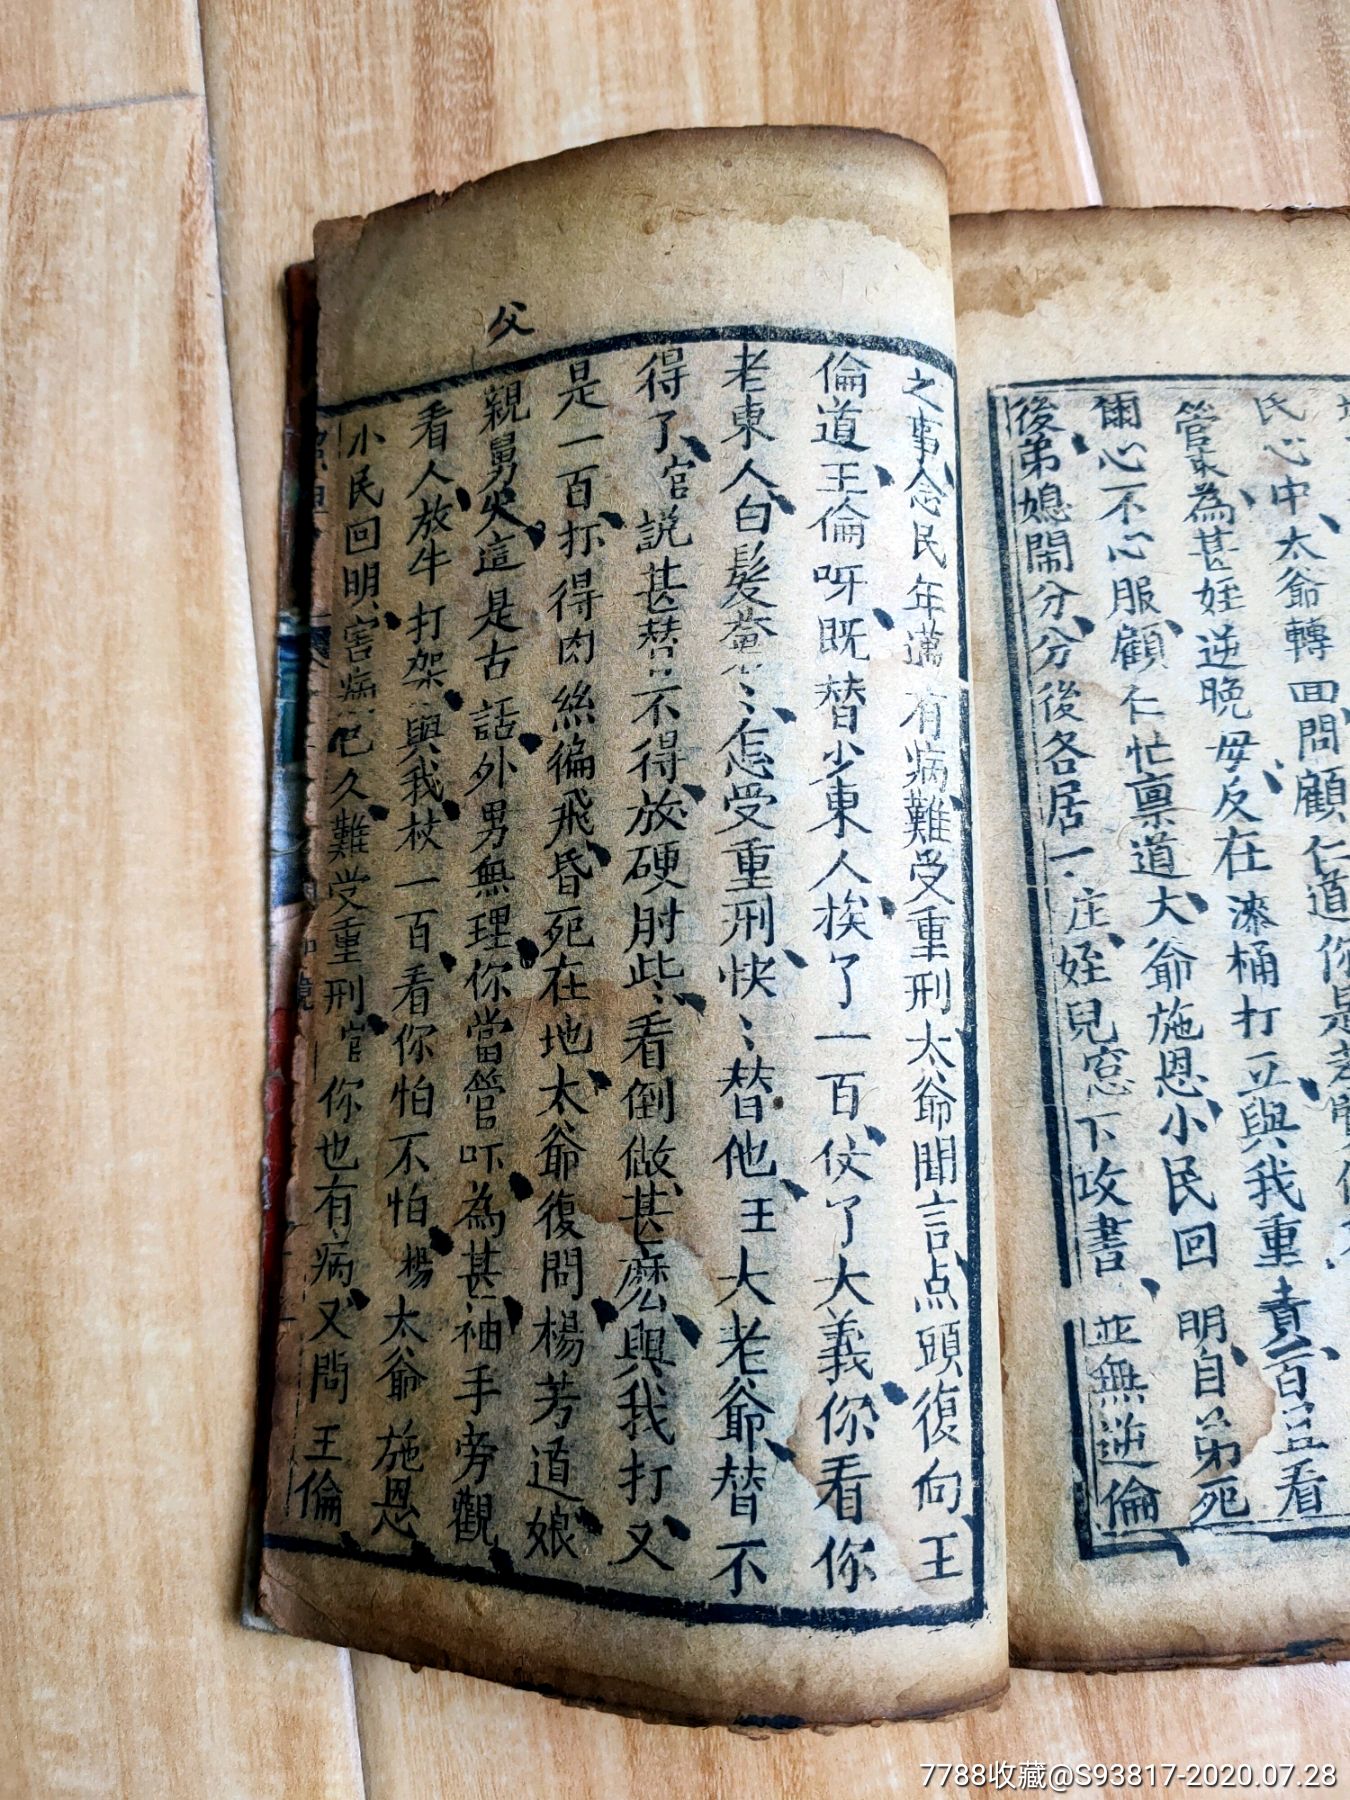 氏心中太爺轉回問顧仁道你是
管家為甚姪逆晚母反在漆桶打立與我重責一百豆看
爾心不心服顧仁忙稟道大爺施恩小民回明自弟死
後弟媳鬧分分後各居一庄姪兒窓下攻書並無逆倫
之事念民年邁有病難受重刑太爺聞言点頭復向王
倫道王倫呀既替少東人挨了一百仗了大義你看你
老東人白髮蒼蒼怎受重刑快快替他王大老爺替不
得了官説甚替不得放硬肘些些看倒做甚麽與我打又
是一百打得肉絲徧飛昏死在地太爺復問楊芳道娘
父
親舅父這是古話外男無理你當管吓為甚袖手旁觀
看人放牛打架與我杖一百看你怕不怕楊太爺施恩
小民回明害病已久難受重刑官你也有病又問王倫
7788收藏@S93817-2020.07.28